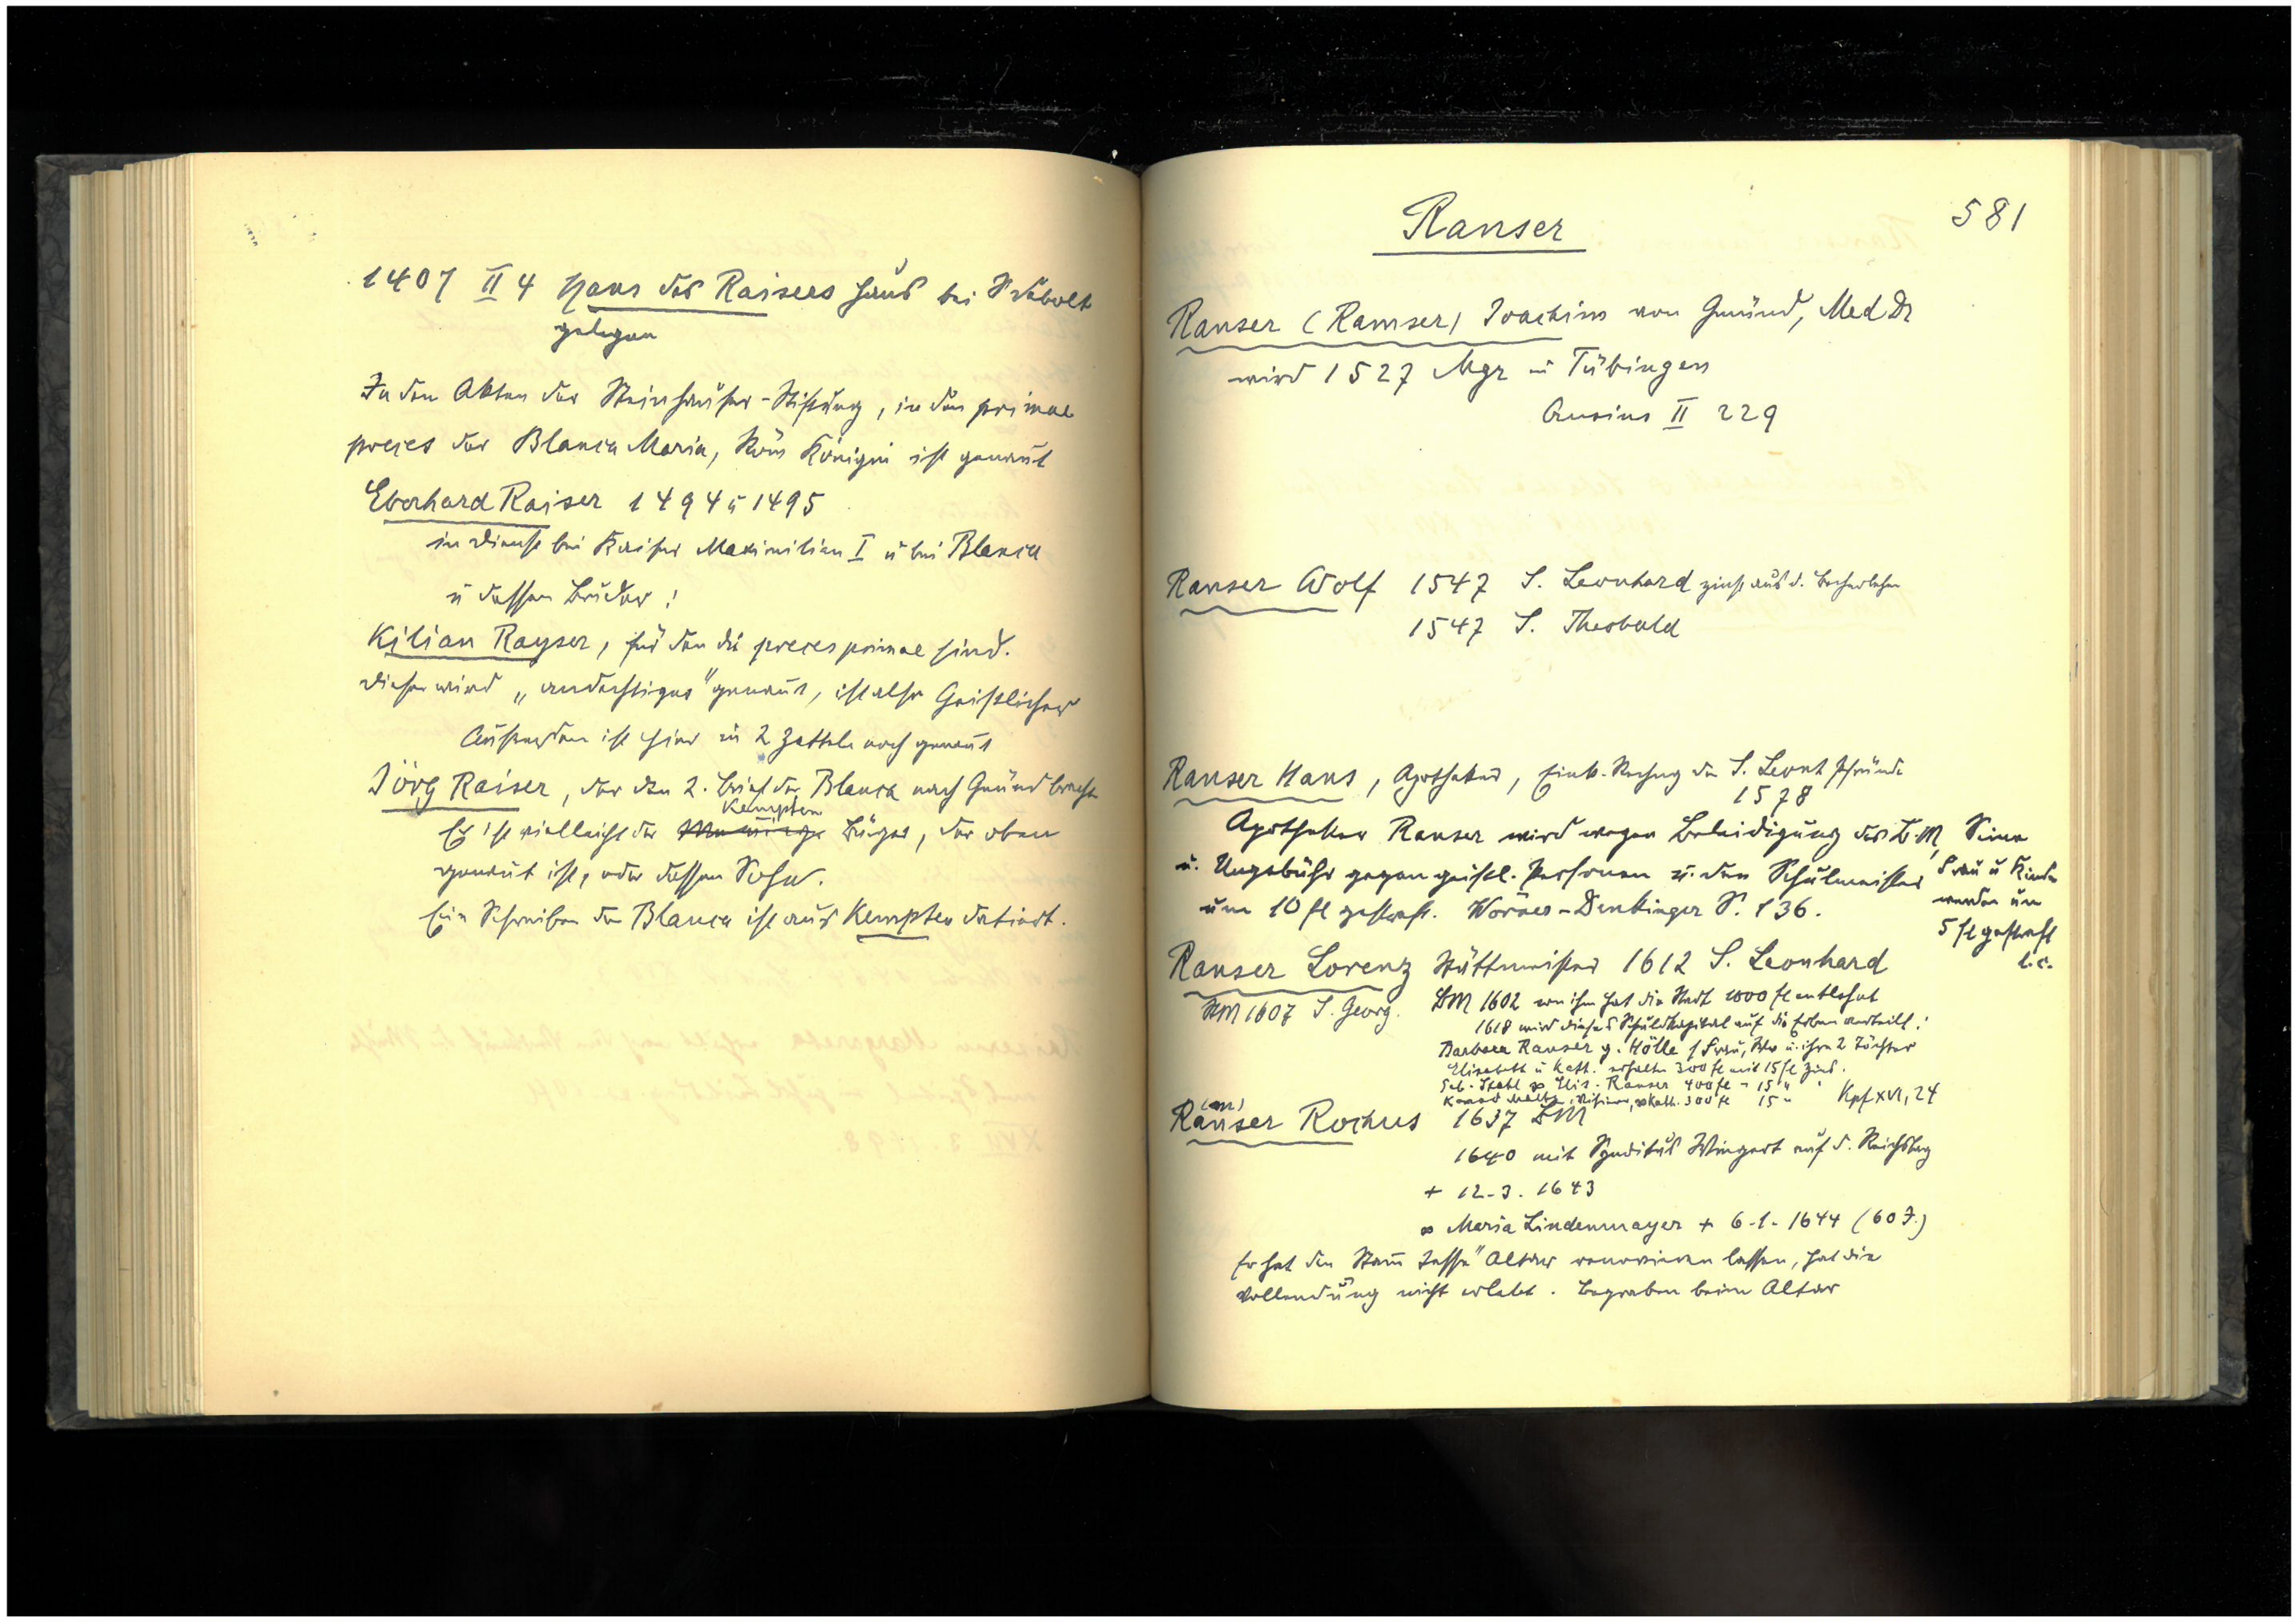 1407 II 4 Hans des Raisers Haus bei S Tebolt
gelegen
In den Akten der Steinhäuser-Stiftung, in den primae
preces der Blanca Maria, Röm Königin ist genannt
Eberhard Raiser 1494 u 1495
in Dienst bei Kaiser Maximilian I u bei Blanca
u dessen Bruder:
Kilian Rayser, für den die preces primae sind.
Dieser wird „andächtiger" genannt, ist also Geistlicher
Außerdem ist hier in 2 Zetteln noch genannt
Jörg Raiser, der den 2. Brief der Blanca nach Gmünd bracht
Kempten
Er ist vielleicht der Bürger, der oben
genannt ist, oder dessen Sohn.
Ein Schreiben der Blanca ist aus Kempten datiert.
581
Ranser
Ranser (Ramser) Joachim von Gmünd, Med Dr
wird 1527 Mgr in Tübingen
Crusius II 229
Ranser Wolf 1547 S. Leonhard zinst aus d. Becherlehen
1547 S. Theobald
Ranser Hans, Apotheker, Eink.-Rechng der S. Leonh Pfründe
1578
Apotheker Ranser wird wegen Beleidigung des B.M.
u. Ungebühr gegen geistl. Personen u. den Schulmeister
um 10 fl gestraft. Wörner-Denkinger S. 136.
Seine
Frau u Kinder
werden um
5 fl gestraft
l.c.
Ranser Lorenz Stättmeister 1612 S. Leonhard
StM 1607 S. Georg.
BM 1602 von ihm hat die Stadt 1000 fl entlehnt
1618 wird dieses Schuldkapital auf die Erben verteilt:
Barbara Ranser g. Hölle (Frau, Wwe u. ihre 2 Töchter
Elisabeth u Kath. erhalten 300 fl mit 15 fl Zins.
Seb. Stahl ∞ Elis. Ranser 400 fl - 15 "
∞ Kath. 300 fl 15 "
Kpf XVI, 24
(am)
Ranser Rochus 1637 BM
1640 mit Syndikus Wingert auf d. Reichstag
+ 12-3. 1643
∞ Maria Lindenmayer + 6-1-1644 (60 J.)
Er hat den Stam Jesse" Altar renovieren lassen, hat die
Vollendung nicht erlebt. Begraben beim Altar